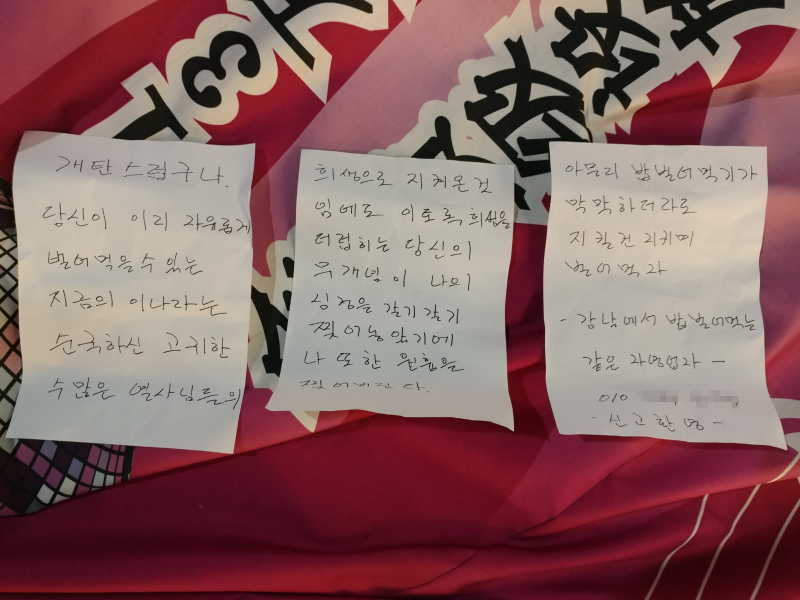 개탄스럽구나.
당신이 이리 자유롭게
벌어먹을수 있는
지금의 이나라는
순국하신 고귀한
수많은 열사님들의
희생으로 지켜온것
임에도 이토록 희생을
더럽히는 당신의
무개념이 나의
심정을 갈기갈기
찢어놓았기에
나 또한 현수막을
찢어버린다.
아무리 밥벌어먹기가
막막하더라도
지킬건 지키며
벌어먹자
- 강남에서 밥벌어먹는
같은 자영업자 -
010
- 신고환영 -